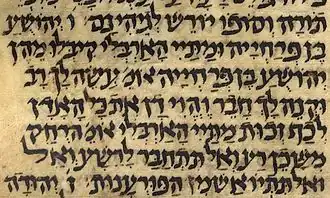 תורה וסופו יורש לגיהינם ו יהושע
בן פרחייה ומתיי הארבלי קיבלו מהן
יהושע בן פרחייה אומ' עשה לך רב
וקנה לך חבר והוי דן אתכל האדן
לכף זכות מתיי הארבלי אומ' הרחק
משכן רע ואל תתחבר לרשע ואל
ואל תתייאש מן הפורענות ז יהודה